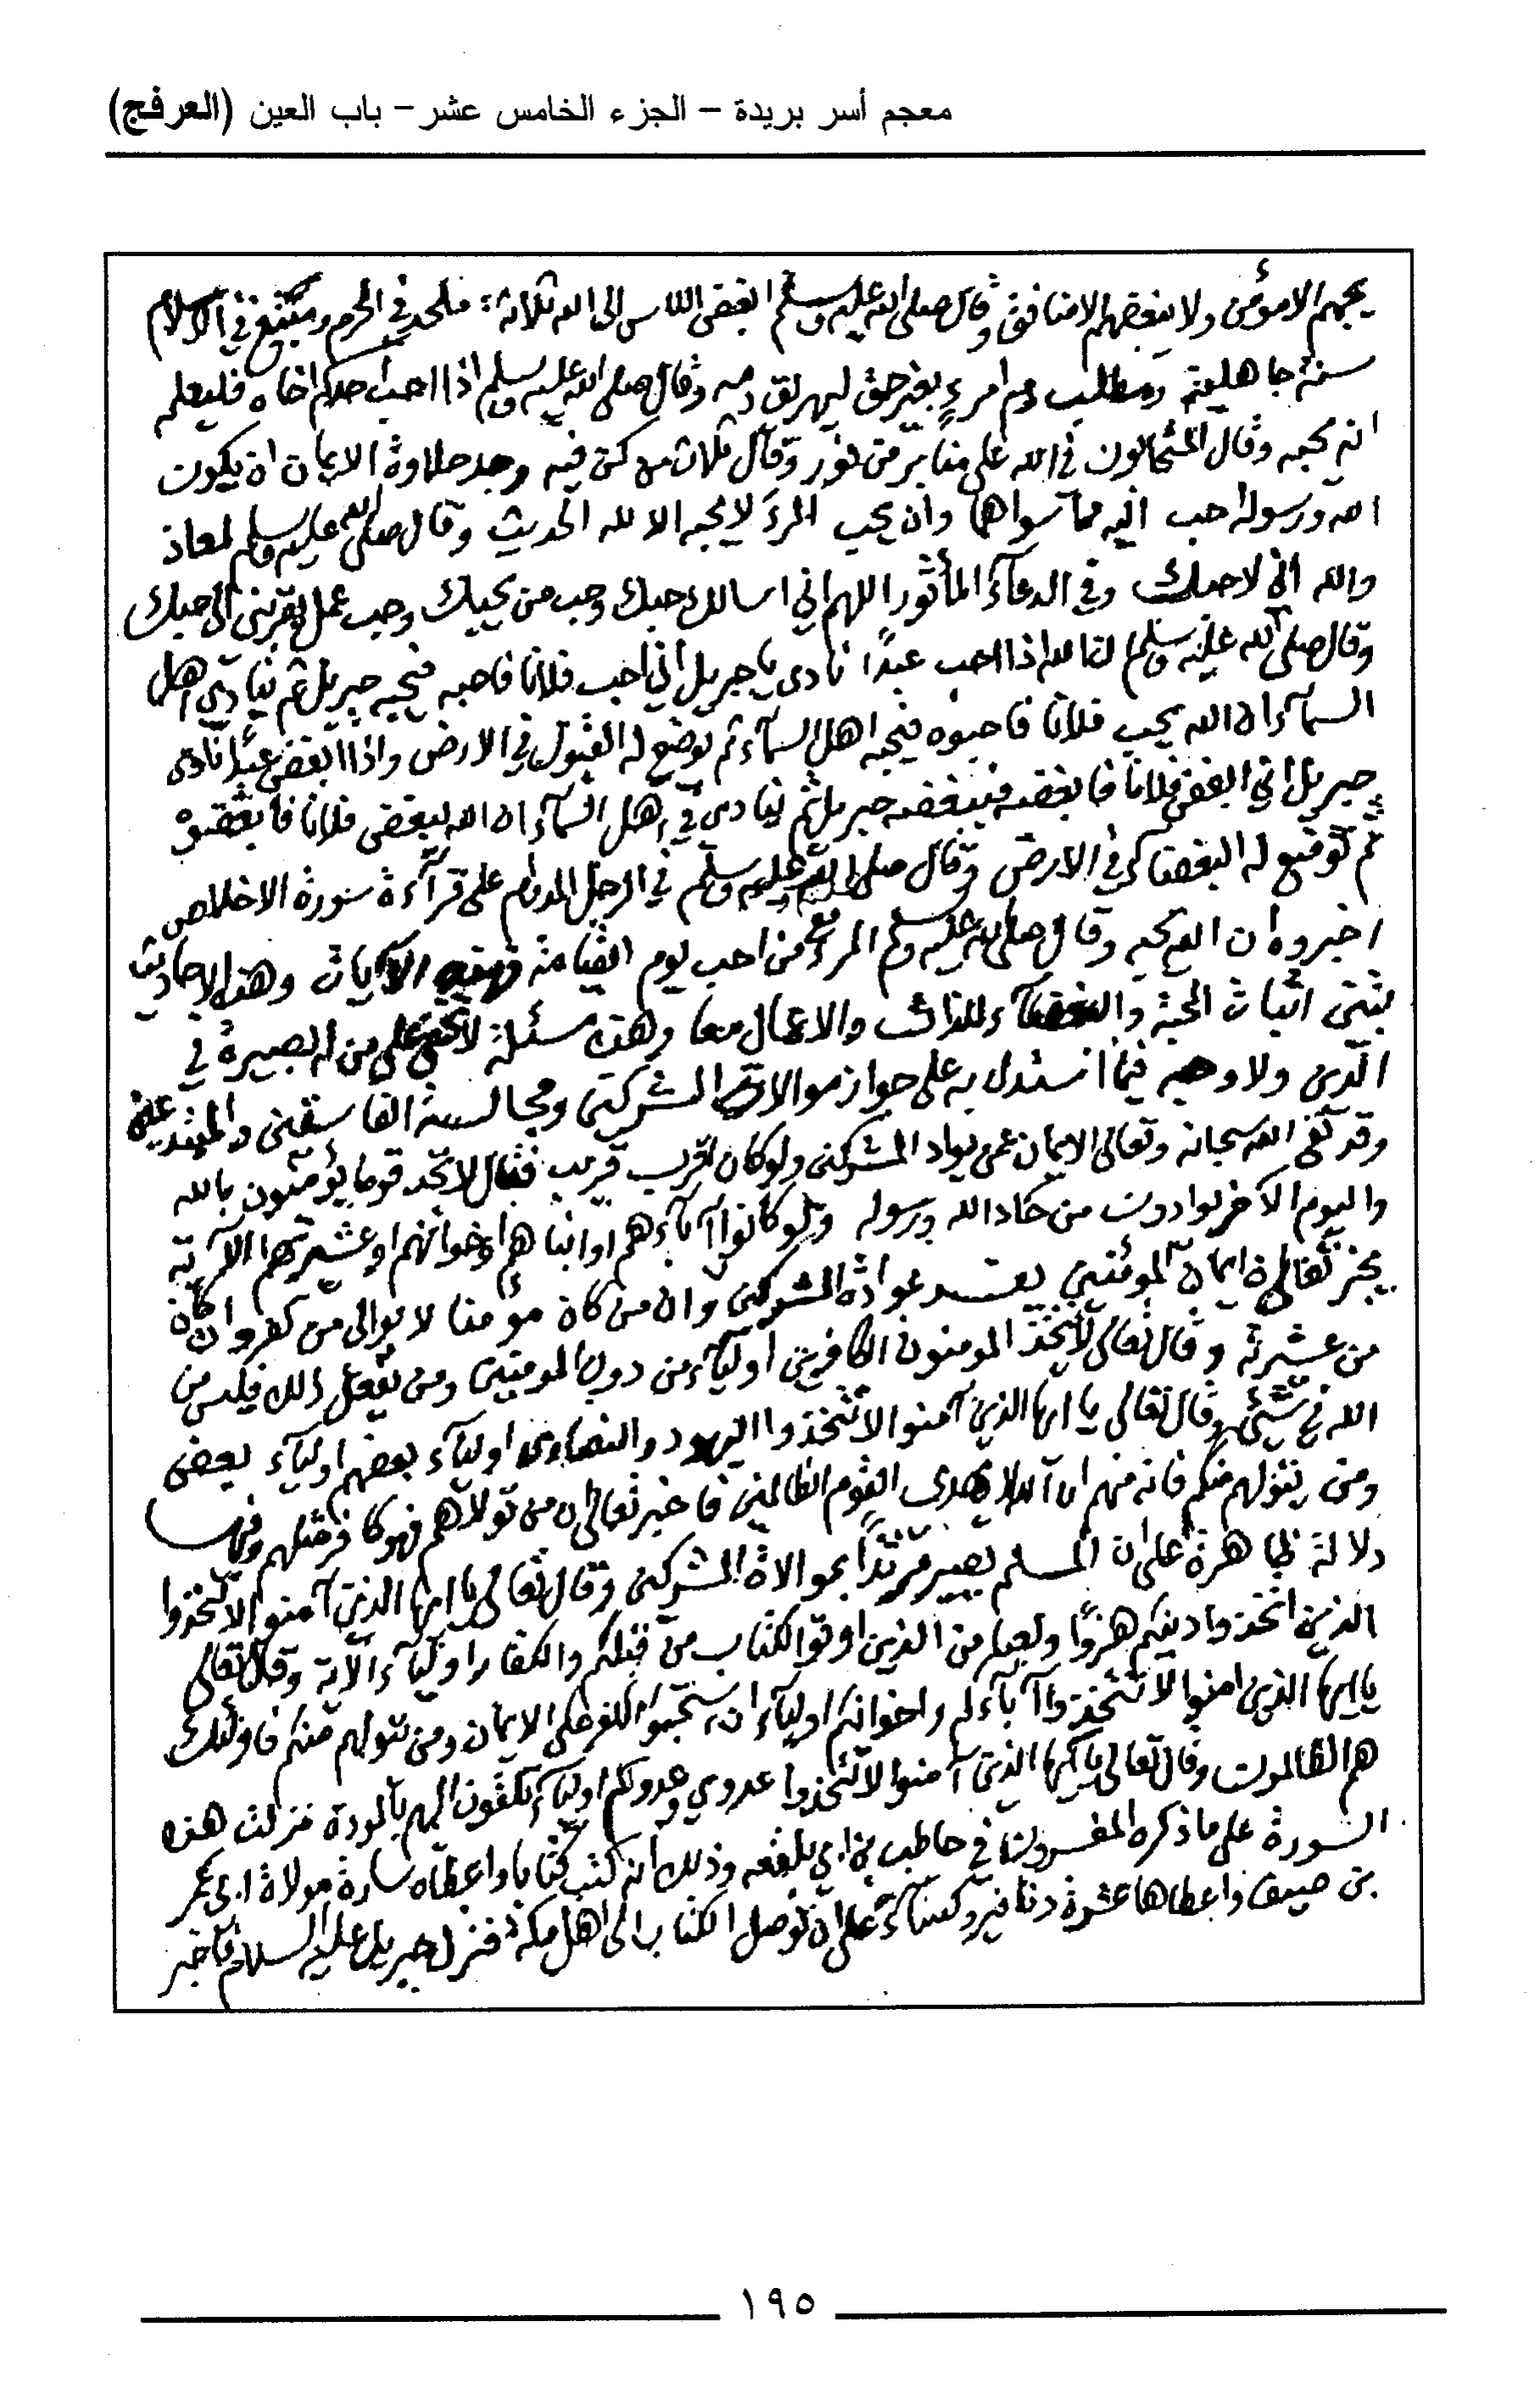 معجم أسر بريدة – الجزء الخامس عشر – باب العين (العرفج)
يحبهم الا مؤمن ولا يبغضهم الا منافق وقال صلى الله عليه وسلم ابغض الناس الى الله ثلاثة: ملحد في الحرم ومبتغ في الاسلام
سنة جاهلية ومطلب دم امرءٍ بغير حق ليهريق دمه وقال صلى الله عليه وسلم اذا احب احدكم اخاه فليعلمه
انه يحبه وقال المتحابون في الله على منابر من نور وقال ثلاث من كن فيه وجد حلاوة الايمان ان يكون
الله ورسوله احب اليه مما سواهما وان يحب المرءَ لا يحبه الا لله الحديث وقال صلى الله عليه وسلم لمعاذ
والله اني لاحبك وفي الدعآء المأثور اللهم اني اسالك حبك وحب من يحبك وحب عمل يقربني الى حبك
وقال صلى الله عليه وسلم ان الله اذا احب عبدًا نادى يا جبريل اني احب فلانا فاحبه فيحبه جبريل ثم ينادي في اهل
السمآء ان الله يحب فلانا فاحبوه فيحبه اهل السمآء ثم يوضع له القبول في الارض واذا ابغض عبدًا نادى
جبريل اني ابغض فلانا فابغضه فيبغضه جبريل ثم ينادي في اهل السمآء ان الله يبغض فلانا فابغضوه
ثم توضع له البغضاء في الارض وقال صلى الله عليه وسلم في الرجل المداوم على قرآءة سورة الاخلاص
اخبروه ان الله يحبه وقال صلى الله عليه وسلم المرء مع من احب يوم القيامة فهذه الآيات وهذه الاحاديث
اثبات المحبة والبغضآء للذات والاعمال معا وهذه مسئلة لا تخفى على من له بصيرة في
الدين ولا وجه فيما استدل به على جواز موالات المشركين ومجالسة الفاسقين والمبتدعين
وقد نفى الله سبحانه وتعالى الايمان عمن يواد المشركين ولو كان اقرب قريب فقال لا تجد قوما يؤمنون بالله
واليوم الآخر يوادون من حاد الله ورسوله ولو كانوا آبآءهم او ابناءهم او اخوانهم او عشيرتهم الآية
يخبر تعالى ان ايمان المؤمنين يفسد بموادة المشركين وان من كان مؤمنا لا يوالي من كفر وان كان
من عشيرته وقال تعالى لا يتخذ المومنون الكافرين اوليآء من دون المومنين ومن يفعل ذلك فليس من
الله في شيئ وقال تعالى يا ايها الذين آمنوا لا تتخذوا اليهود والنصارى اوليآء بعضهم اوليآء بعض
ومن يتولهم منكم فانه منهم ان الله لا يهدى القوم الظالمين فاخبر تعالى ان من تولاهم فهو كافر مثلهم وفيها
دلالة ظاهرة على ان المسلم يصير مرتدًا بموالاة المشركين وقال تعالى يا ايها الذين آمنوا لا تتخذوا
الذين اتخذوا دينكم هزوًا ولعبا من الذين اوتوا الكتاب من قبلكم والكفار اوليآء الآية وقال تعالى
يا ايها الذين امنوا لا تتخذوا آبآءكم واخوانكم اوليآء ان استحبوا الكفر على الايمان ومن يتولهم منكم فاولئك
هم الظالمون وقال تعالى يا ايها الذين آمنوا لا تتخذوا عدوي وعدوكم اوليآء تلقون اليهم بالمودة نزلت هذه
السورة على ما ذكره المفسرون في حاطب بن ابي بلتعه وذلك انه كتب كتابا واعطاه سارة مولاة ابي عمر
بن صيف واعطاها عشرة دنانير وكسآء على ان توصل الكتاب الى اهل مكة فنزل جبريل عليه السلام فاخبر
١٩٥